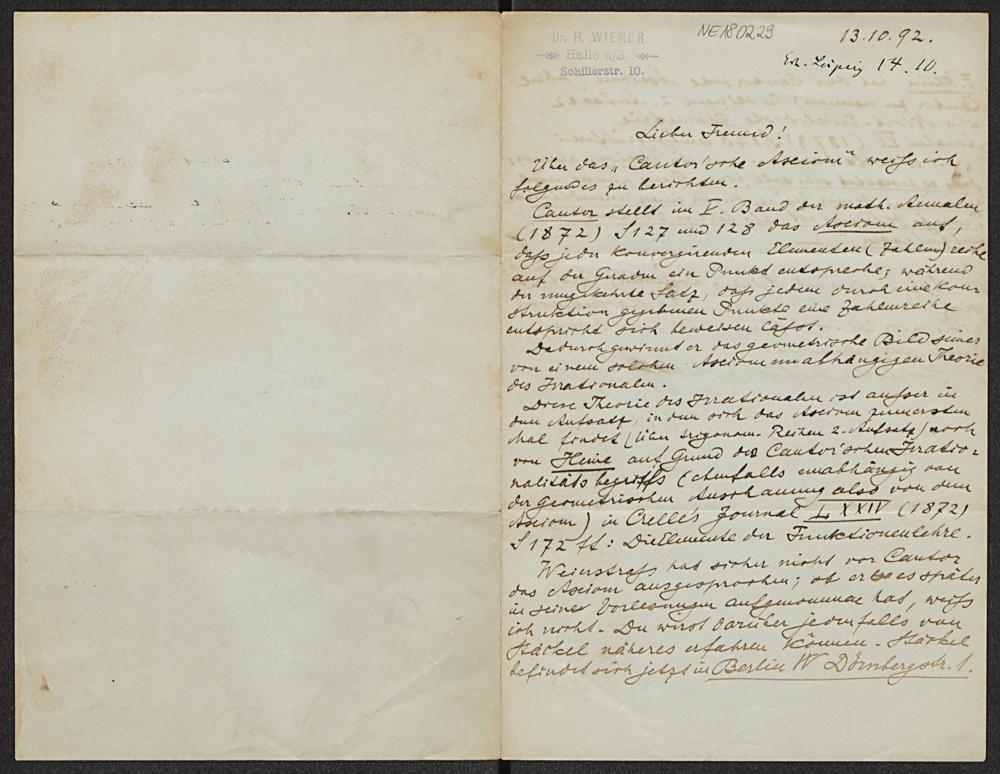 Dr. H. WIENER
Halle a/S.
Schillerstr. 10.
NE180229
13.10.92.
Erh. Leipzig 14.10.
Lieber Freund!
Über das „Cantor'sche Axiom" weiß ich
folgendes zu berichten.
Cantor stellt im V. Band der math. Annalen
(1872) S 127 und 128 das Axiom auf,
daß jeder konvergirenden Elementen (Zahlen) reihe
auf der Geraden ein Punkt entspreche; während
der umgekehrte Satz, daß jedem durch eine Kon-
struktion gegebenen Punkte eine Zahlenreihe
entspricht sich beweisen läßt.
Dadurch gewinnt er das geometrische Bild seiner
von einem solchen Axiom unabhängigen Theorie
des Irrationalen.
Diese Theorie des Irrationalen ist außer in
dem Aufsatz, in dem sich das Axiom zum ersten
Mal findet (Über trigonom. Reihen 2. Aufsatz) noch
von Heine auf Grund des Cantor'schen Irratio-
nalitäts begriffs (ebenfalls unabhängig von
der geometrischen Anschauung also von dem
Axiom) in Crelle's Journal LXXIV (1872)
S 172 ff: Die Elemente der Funktionenlehre.
Weierstraß hat sicher nicht vor Cantor
das Axiom ausgesprochen; ob er es später
in seine Vorlesungen aufgenommen hat, weiß
ich nicht. Du wirst darüber jedenfalls von
Stäckel näheres erfahren können. Stäckel
befindet sich jetzt in Berlin W Dörnbergstr. 1.